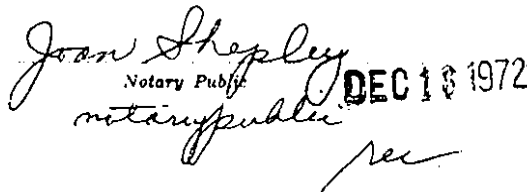 Joan Shepley
Notary Public
DEC 13 1972
notary public
rec